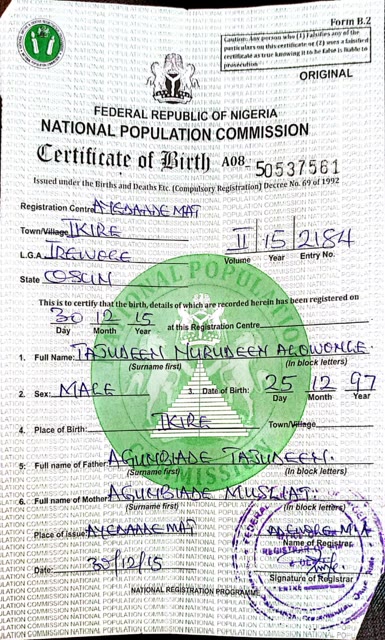 Form B.2
Caution: Any person who (1) Falsifies any of the
particulars on this certificate or (2) uses a falsified
certificate as true knowing it to be false is liable to
prosecution
ORIGINAL
FEDERAL REPUBLIC OF NIGERIA
NATIONAL POPULATION COMMISSION
Certificate of Birth A08- 50537561
Issued under the Births and Deaths Etc. (Compulsory Registration) Decree No. 69 of 1992
Registration Centre
Town/Village IKIRE
II 15 2184
L.G.A. IREWOLE Volume Year Entry No.
State OSUN
This is to certify that the birth, details of which are recorded herein has been registered on
30 12 15 at this Registration Centre
Day Month Year
1. Full Name: TAJUDEEN NURUDEEN AGOWONLE
(Surname first) (In block letters)
2. Sex: MALE 3. Date of Birth: 25 12 97
Day Month Year
4. Place of Birth: IKIRE Town/Village
5. Full name of Father AGUNBIADE TAJUDEEN.
(Surname first) (In block letters)
6. Full name of Mother AGUNBIADE MUSLIAT.
(Surname first) (In block letters)
Place of issue
Name of Registrar
Date: 30/12/15
Signature of Registrar
NATIONAL REGISTRATION PROGRAMME
NATIONAL POPULATION COMMISSION